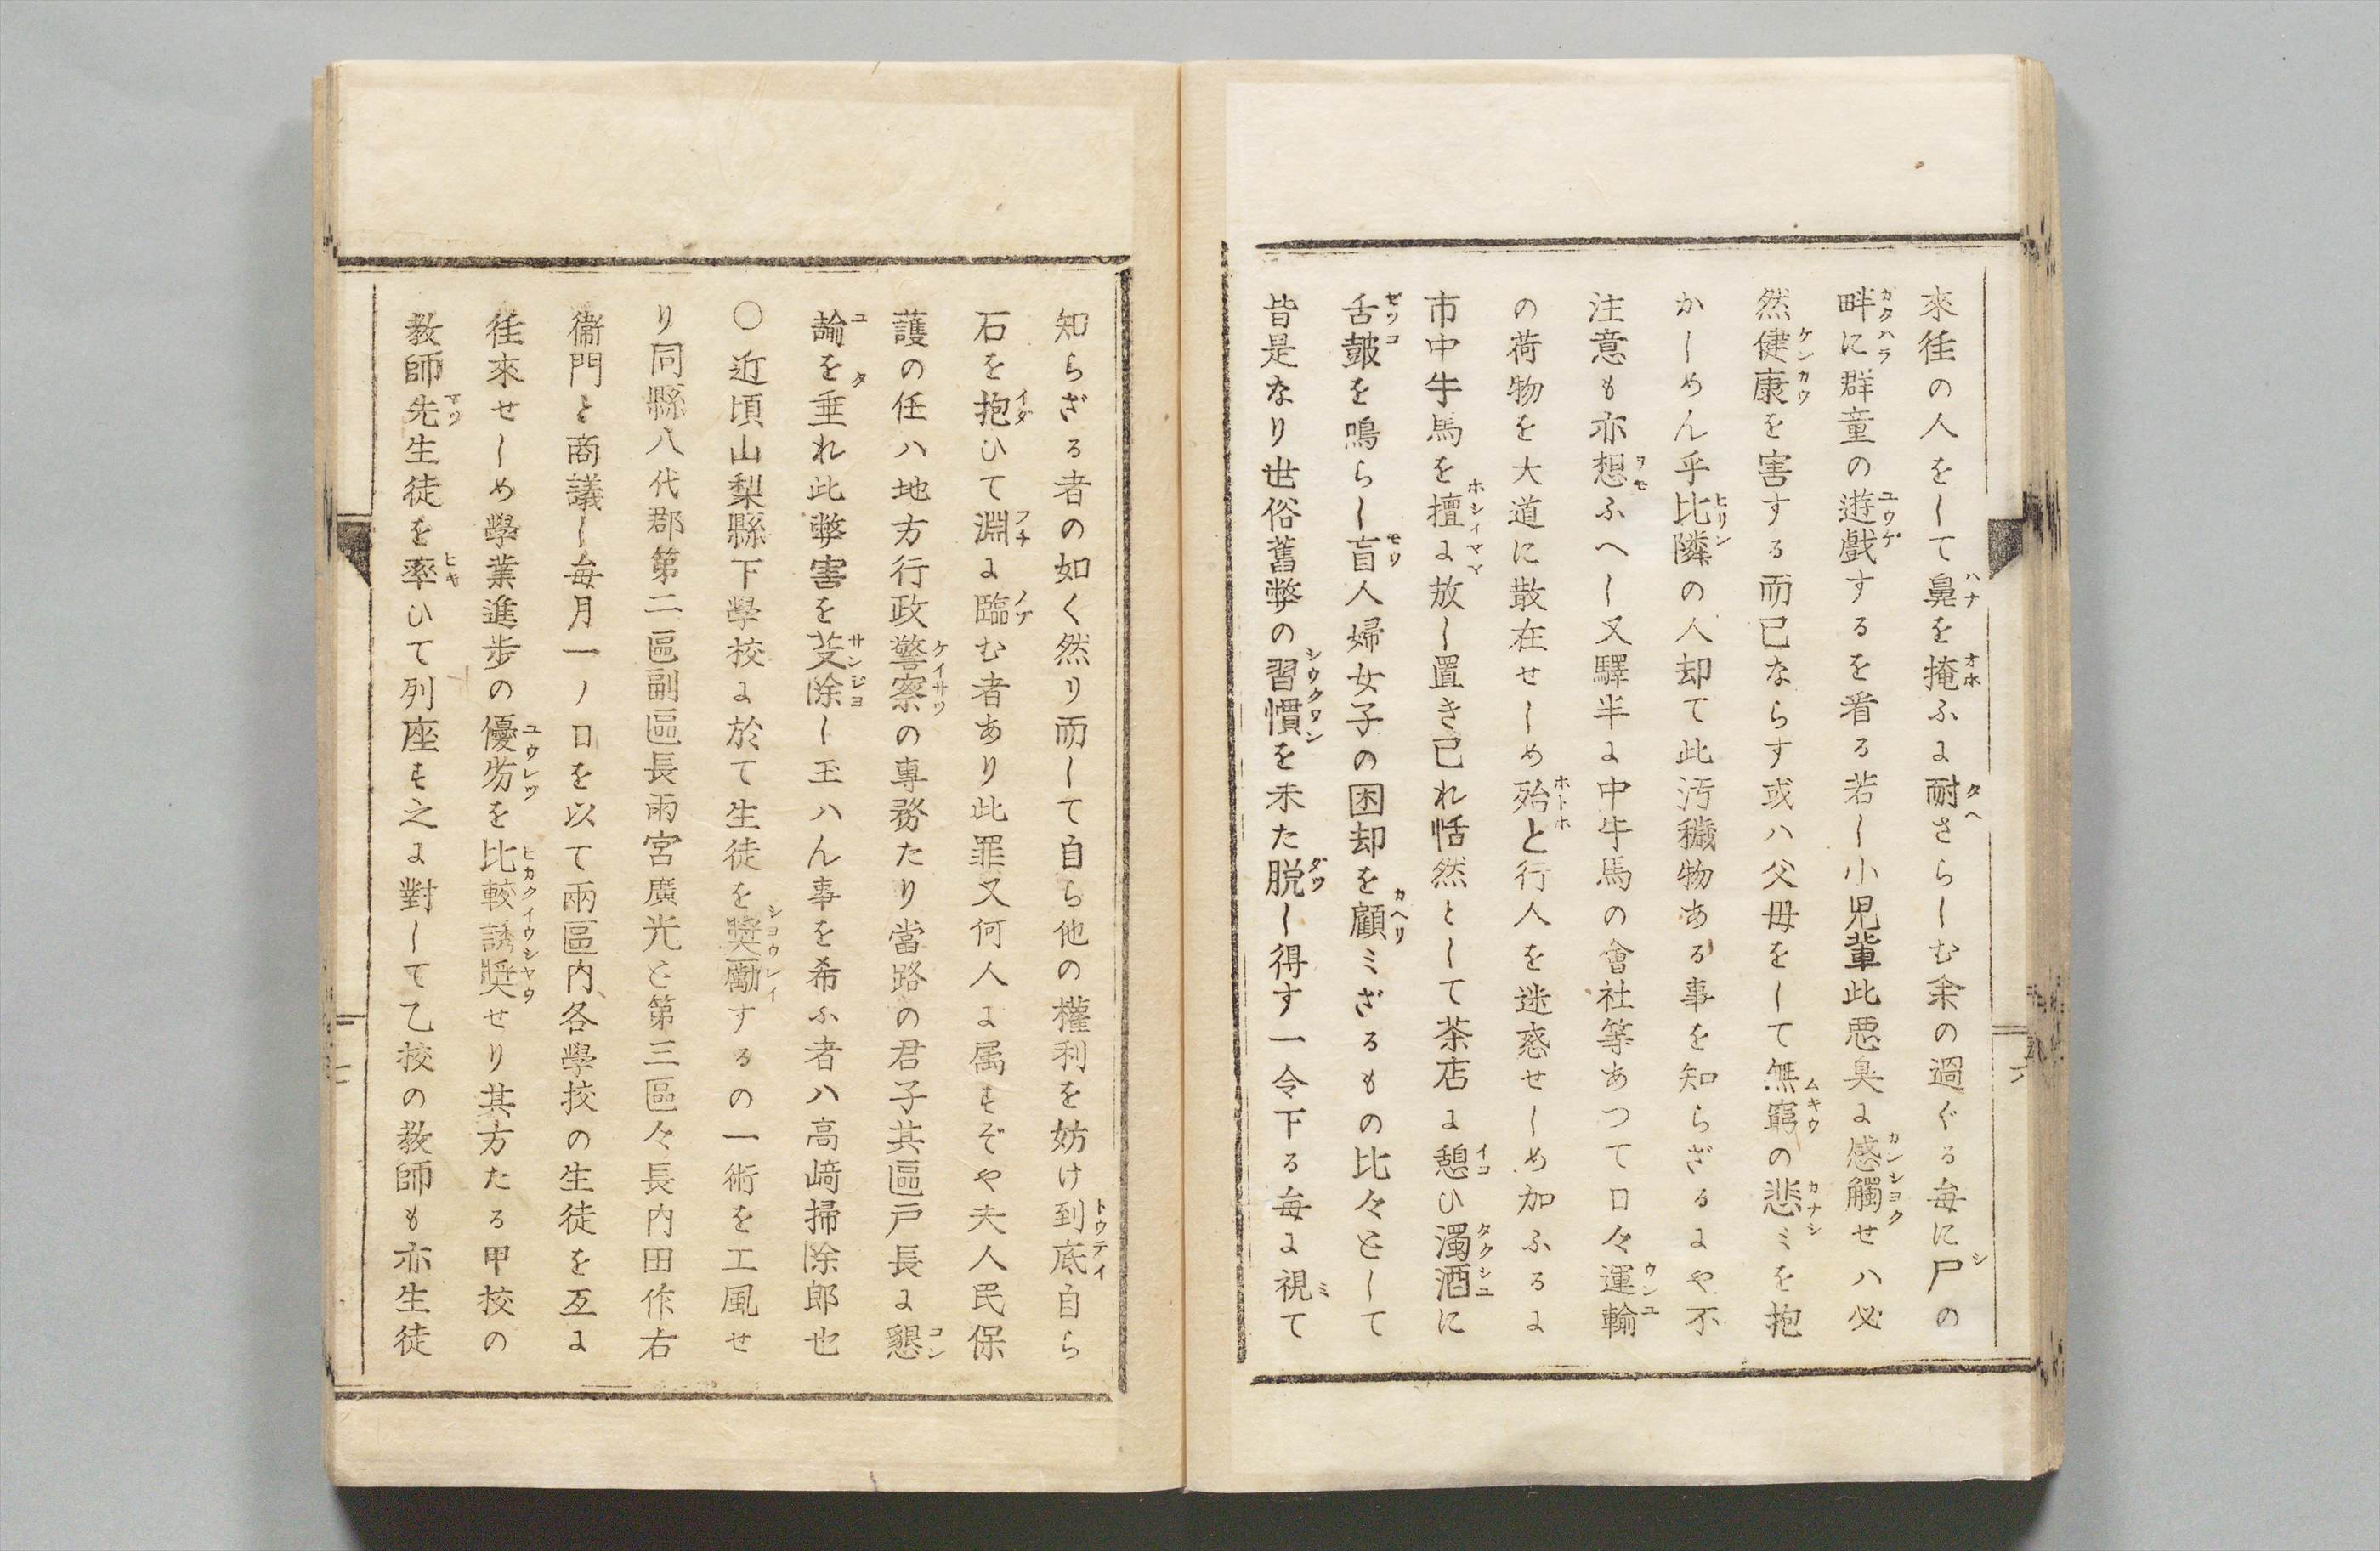 來徃の人をして鼻を掩ふに耐さらしむ余の過ぐる毎に尸の
畔に群童の遊戲するを看る若し小児輩此悪臭に感觸せハ必
然健康を害する而已ならす或ハ父母をして無窮の悲ミを抱
かしめん乎比隣の人却て此汚穢物ある事を知らざるにや不
注意も亦想ふへし又驛半に中牛馬の會社等あつて日々運輸
の荷物を大道に散在せしめ殆と行人を迷惑せしめ加ふるに
市中牛馬を擅に放し置き已れ恬然として茶店に憩ひ濁酒に
舌皷を鳴らし盲人婦女子の困却を顧ミざるもの比々として
皆是なり世俗舊弊の習慣を未た脱し得す一令下る毎に視て
知らざる者の如く然り而して自ら他の權利を妨け到底自ら
石を抱ひて淵に臨む者あり此罪又何人に属すぞや夫人民保
護の任ハ地方行政警察の專務たり當路の君子其區戸長に懇
諭を垂れ此弊害を芟除し玉ハん事を希ふ者ハ高﨑掃除郎也
〇近頃山梨縣下學校に於て生徒を奬勵するの一術を工風せ
り同縣八代郡第二區副區長雨宮廣光と第三區々長内田作右
衞門と商議し毎月一ノ日を以て兩區内各學校の生徒を互に
徃來せしめ學業進歩の優劣を比較誘奬せり其方たる甲校の
教師先生徒を率ひて列座す之に對して乙校の教師も亦生徒